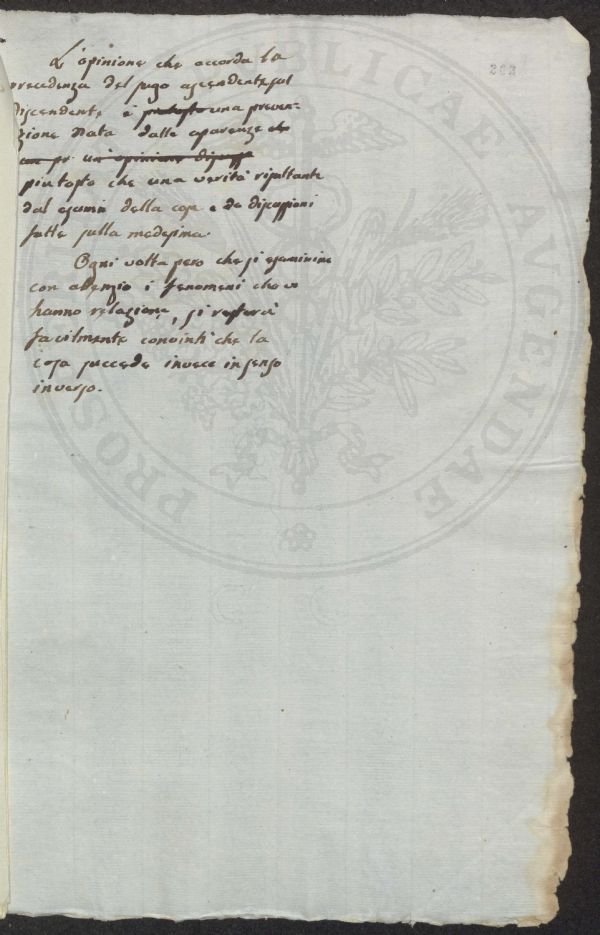 L'opinione che accorda la
precedenza del sugo ascendente sul
discendente è piutosto una preven-
zione nata dalle aparenze che
un opinione
piutosto che una verità risultante
dal esamin della cosa e da discussioni
fatte sulla medesima.
Ogni volta pero che si esaminine
con atenzio i fenomeni che vi
hanno relazione, si resterà
facilmente convinti che la
cosa succede invece in senso
inverso.
PUBLICAE AUGENDAE PROS